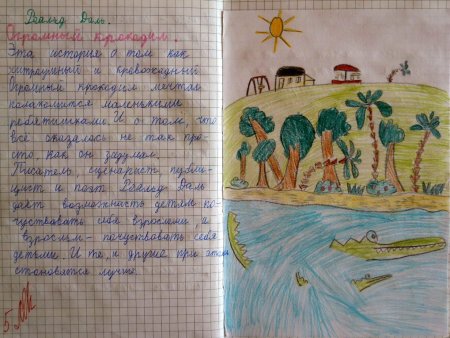 Роальд Даль.
Огромный крокодил.
Эта история о том как
хитроумный и кровожадный
Огромный крокодил мечтал
полакомится маленькими
ребятишками. И о том, что
всё оказалось не так про-
сто, как он задумал.
Писатель, сценарист, публи-
цист и поэт Роальд Даль
даёт возможность детям по-
чувствовать себя взрослыми и
взрослым - почувствовать себя
детьми. И те, и другие при этом
становятся лучше.
5